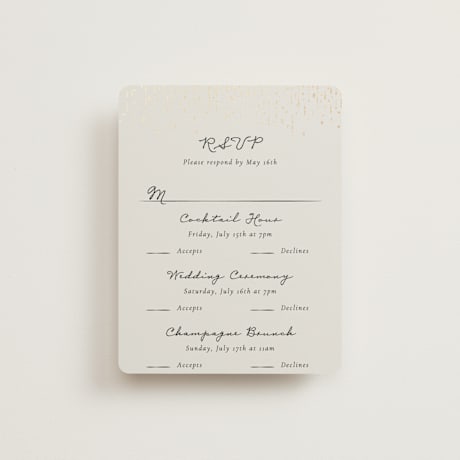 RSVP
Please respond by May 16th
M
Cocktail Hour
Friday, July 15th at 7pm
Accepts Declines
Wedding Ceremony
Saturday, July 16th at 7pm
Accepts Declines
Champagne Brunch
Sunday, July 17th at 11am
Accepts Declines